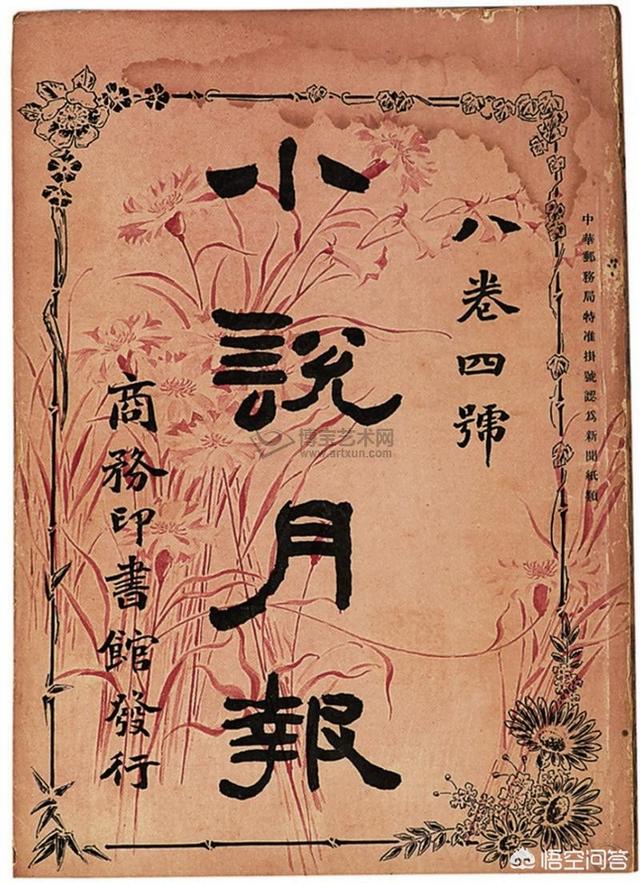 中華郵務局特准掛號認爲新聞紙類
八卷四號
小説月報
商務印書館發行
博宝艺术网
www.artxun.com
悟空问答